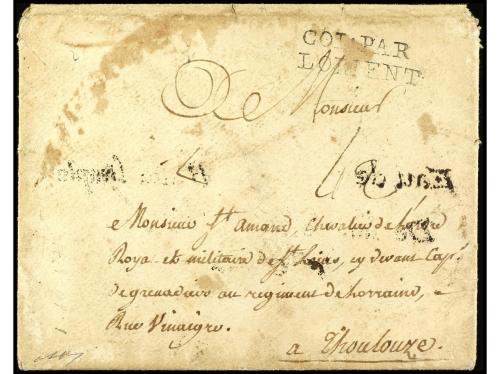 COL. PAR
LORIENT
Monsieur
e Monsieur St. Amand, Chevalier de Lordre
Roya et militaire de St. Louis, cy devant Capt.
de grenadiers au regiment de Lorraine,
Rue Vinaigre.
a Thoulouze.